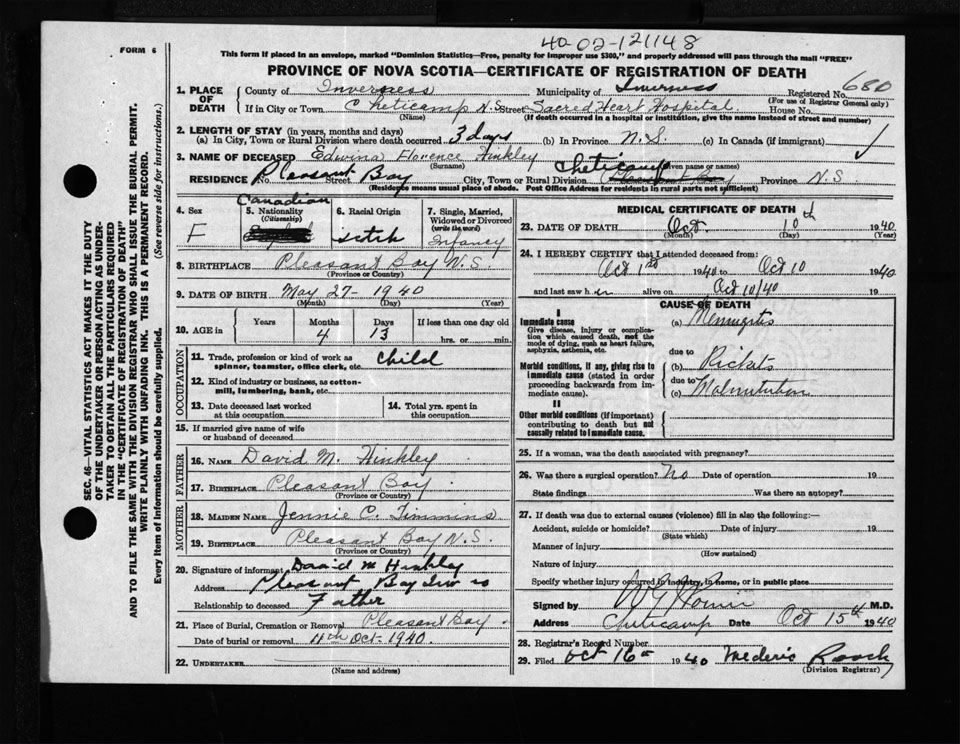 40-02-121148
FORM 6
This form if placed in an envelope, marked "Dominion Statistics—Free, penalty for improper use $300," and properly addressed will pass through the mail "FREE"
PROVINCE OF NOVA SCOTIA—CERTIFICATE OF REGISTRATION OF DEATH
680
1. PLACE OF DEATH County of Inverness Municipality of Inverness Registered No.
(For use of Registrar General only)
If in City or Town Cheticamp N.S. Street Sacred Heart Hospital. House No.
(Name) (If death occurred in a hospital or institution, give the name instead of street and number)
2. LENGTH OF STAY (in years, months and days)
(a) In City, Town or Rural Division where death occurred 3 days (b) In Province N.S. (c) In Canada (if immigrant) ✓
3. NAME OF DECEASED Edwina Florence Hinkley
(Surname) (Given name or names)
RESIDENCE No. Pleasant Bay Street City, Town or Rural Division Cheticamp Province N.S
(Residence means usual place of abode. Post Office Address for residents in rural parts not sufficient)
4. Sex F
5. Nationality (Citizenship) Canadian
6. Racial Origin
7. Single, Married, Widowed or Divorced (write the word) Infancy
8. BIRTHPLACE Pleasant Bay N.S.
(Province or Country)
9. DATE OF BIRTH May 27 - 1940
(Month) (Day) (Year)
10. AGE in Years Months 4 Days 13 If less than one day old hrs. or min.
OCCUPATION
11. Trade, profession or kind of work as spinner, teamster, office clerk, etc. Child
12. Kind of industry or business, as cotton-mill, lumbering, bank, etc.
13. Date deceased last worked at this occupation
14. Total yrs. spent in this occupation
15. If married give name of wife or husband of deceased
FATHER
16. NAME David M. Hinkley
17. BIRTHPLACE Pleasant Bay.
(Province or Country)
MOTHER
18. MAIDEN NAME Jennie C. Timmins
19. BIRTHPLACE Pleasant Bay N.S.
(Province or Country)
20. Signature of informant David M Hinkley
Address Pleasant Bay
Relationship to deceased Father
21. Place of Burial, Cremation or Removal Pleasant Bay.
Date of burial or removal 11th Oct. 1940
22. UNDERTAKER
(Name and address)
MEDICAL CERTIFICATE OF DEATH
23. DATE OF DEATH Oct. 10th 1940
(Month) (Day) (Year)
24. I HEREBY CERTIFY that I attended deceased from:
Oct 1st 1940 to Oct 10 1940
and last saw her alive on Oct 10/40 19
CAUSE OF DEATH
I
Immediate cause
Give disease, injury or complication which caused death, not the mode of dying, such as heart failure, asphyxia, asthenia, etc.
(a) Meningitis
Morbid conditions, if any, giving rise to immediate cause (stated in order proceeding backwards from immediate cause).
due to
(b) Rickets
due to
(c) Malnutrition
II
Other morbid conditions (if important) contributing to death but not causally related to immediate cause.
25. If a woman, was the death associated with pregnancy?
26. Was there a surgical operation? No Date of operation 19
State findings Was there an autopsy?
27. If death was due to external causes (violence) fill in also the following:—
Accident, suicide or homicide? Date of injury 19
(State which)
Manner of injury
(How sustained)
Nature of injury
Specify whether injury occurred in industry, in home, or in public place
Signed by M.D.
Address Cheticamp Date Oct 15th 1940
28. Registrar's Record Number
29. Filed Oct 16th 1940 Mederic Roach
(Division Registrar)
SEC. 46—VITAL STATISTICS ACT MAKES IT THE DUTY
OF THE UNDERTAKER OR PERSON ACTING AS UNDER-
TAKER TO OBTAIN ALL THE PARTICULARS REQUIRED
IN THE "CERTIFICATE OF REGISTRATION OF DEATH"
AND TO FILE THE SAME WITH THE DIVISION REGISTRAR WHO SHALL ISSUE THE BURIAL PERMIT.
WRITE PLAINLY WITH UNFADING INK. THIS IS A PERMANENT RECORD.
Every item of information should be carefully supplied. (See reverse side for instructions.)